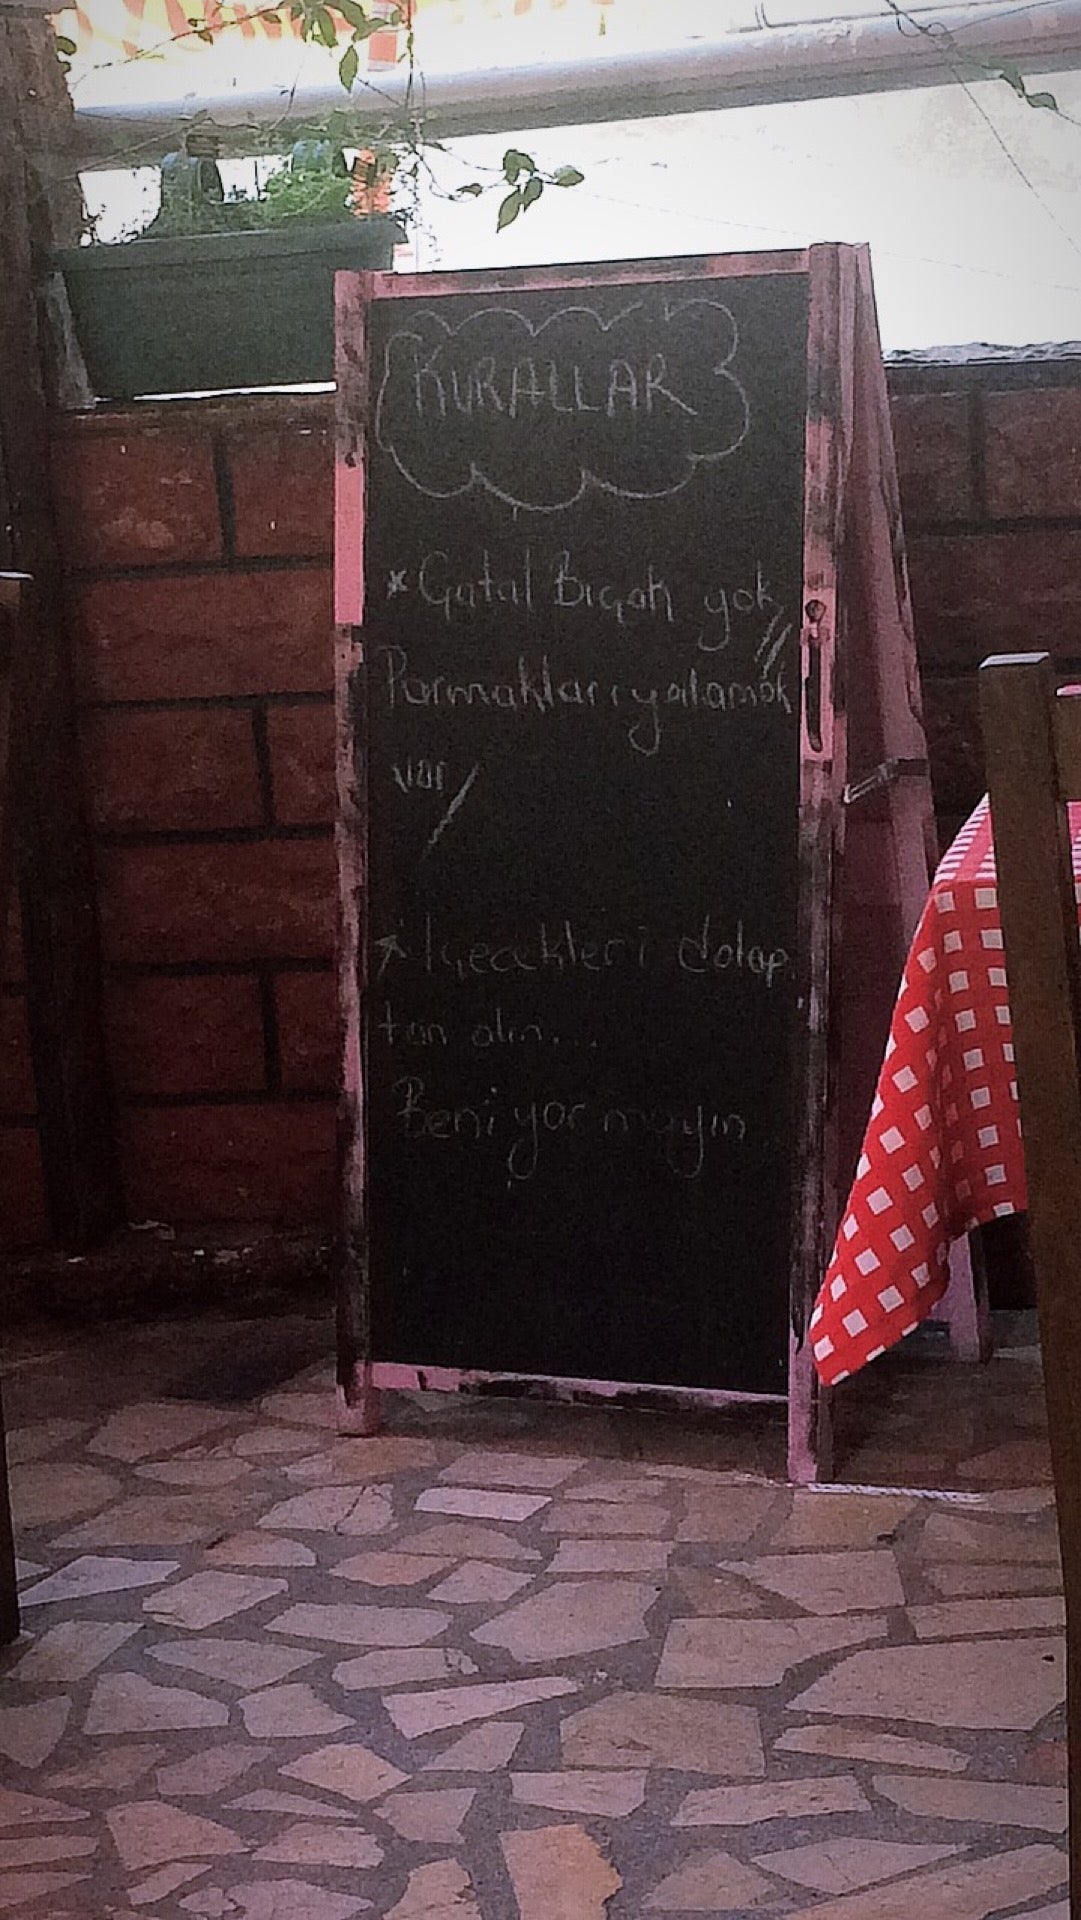 KURALLAR
* Çatal Bıçak yok //
Parmakları yalamak
var /
* İçecekleri dolap
tan alın...
Beni yormayın..